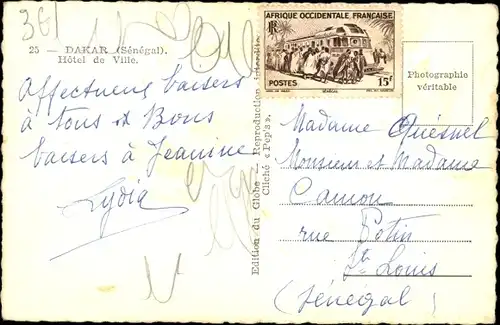 361
25 - DAKAR (Sénégal).
Hôtel de Ville.
Affectueux baisers
à tous et Bons
baisers à Jeanine
Lydia
Edition du Globe - Reproduction interdite
Cliché « Pep's »
AFRIQUE OCCIDENTALE FRANÇAISE
RF
POSTES
15F
SÉNÉGAL
Photographie
véritable
Madame Quesnel
Monsieur et Madame
Camou
rue Potin
St. Louis
(Sénégal)